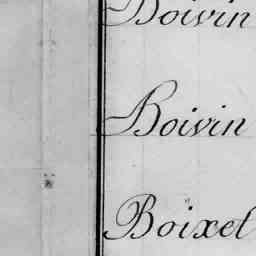 Boivin
Boivin
Boixel